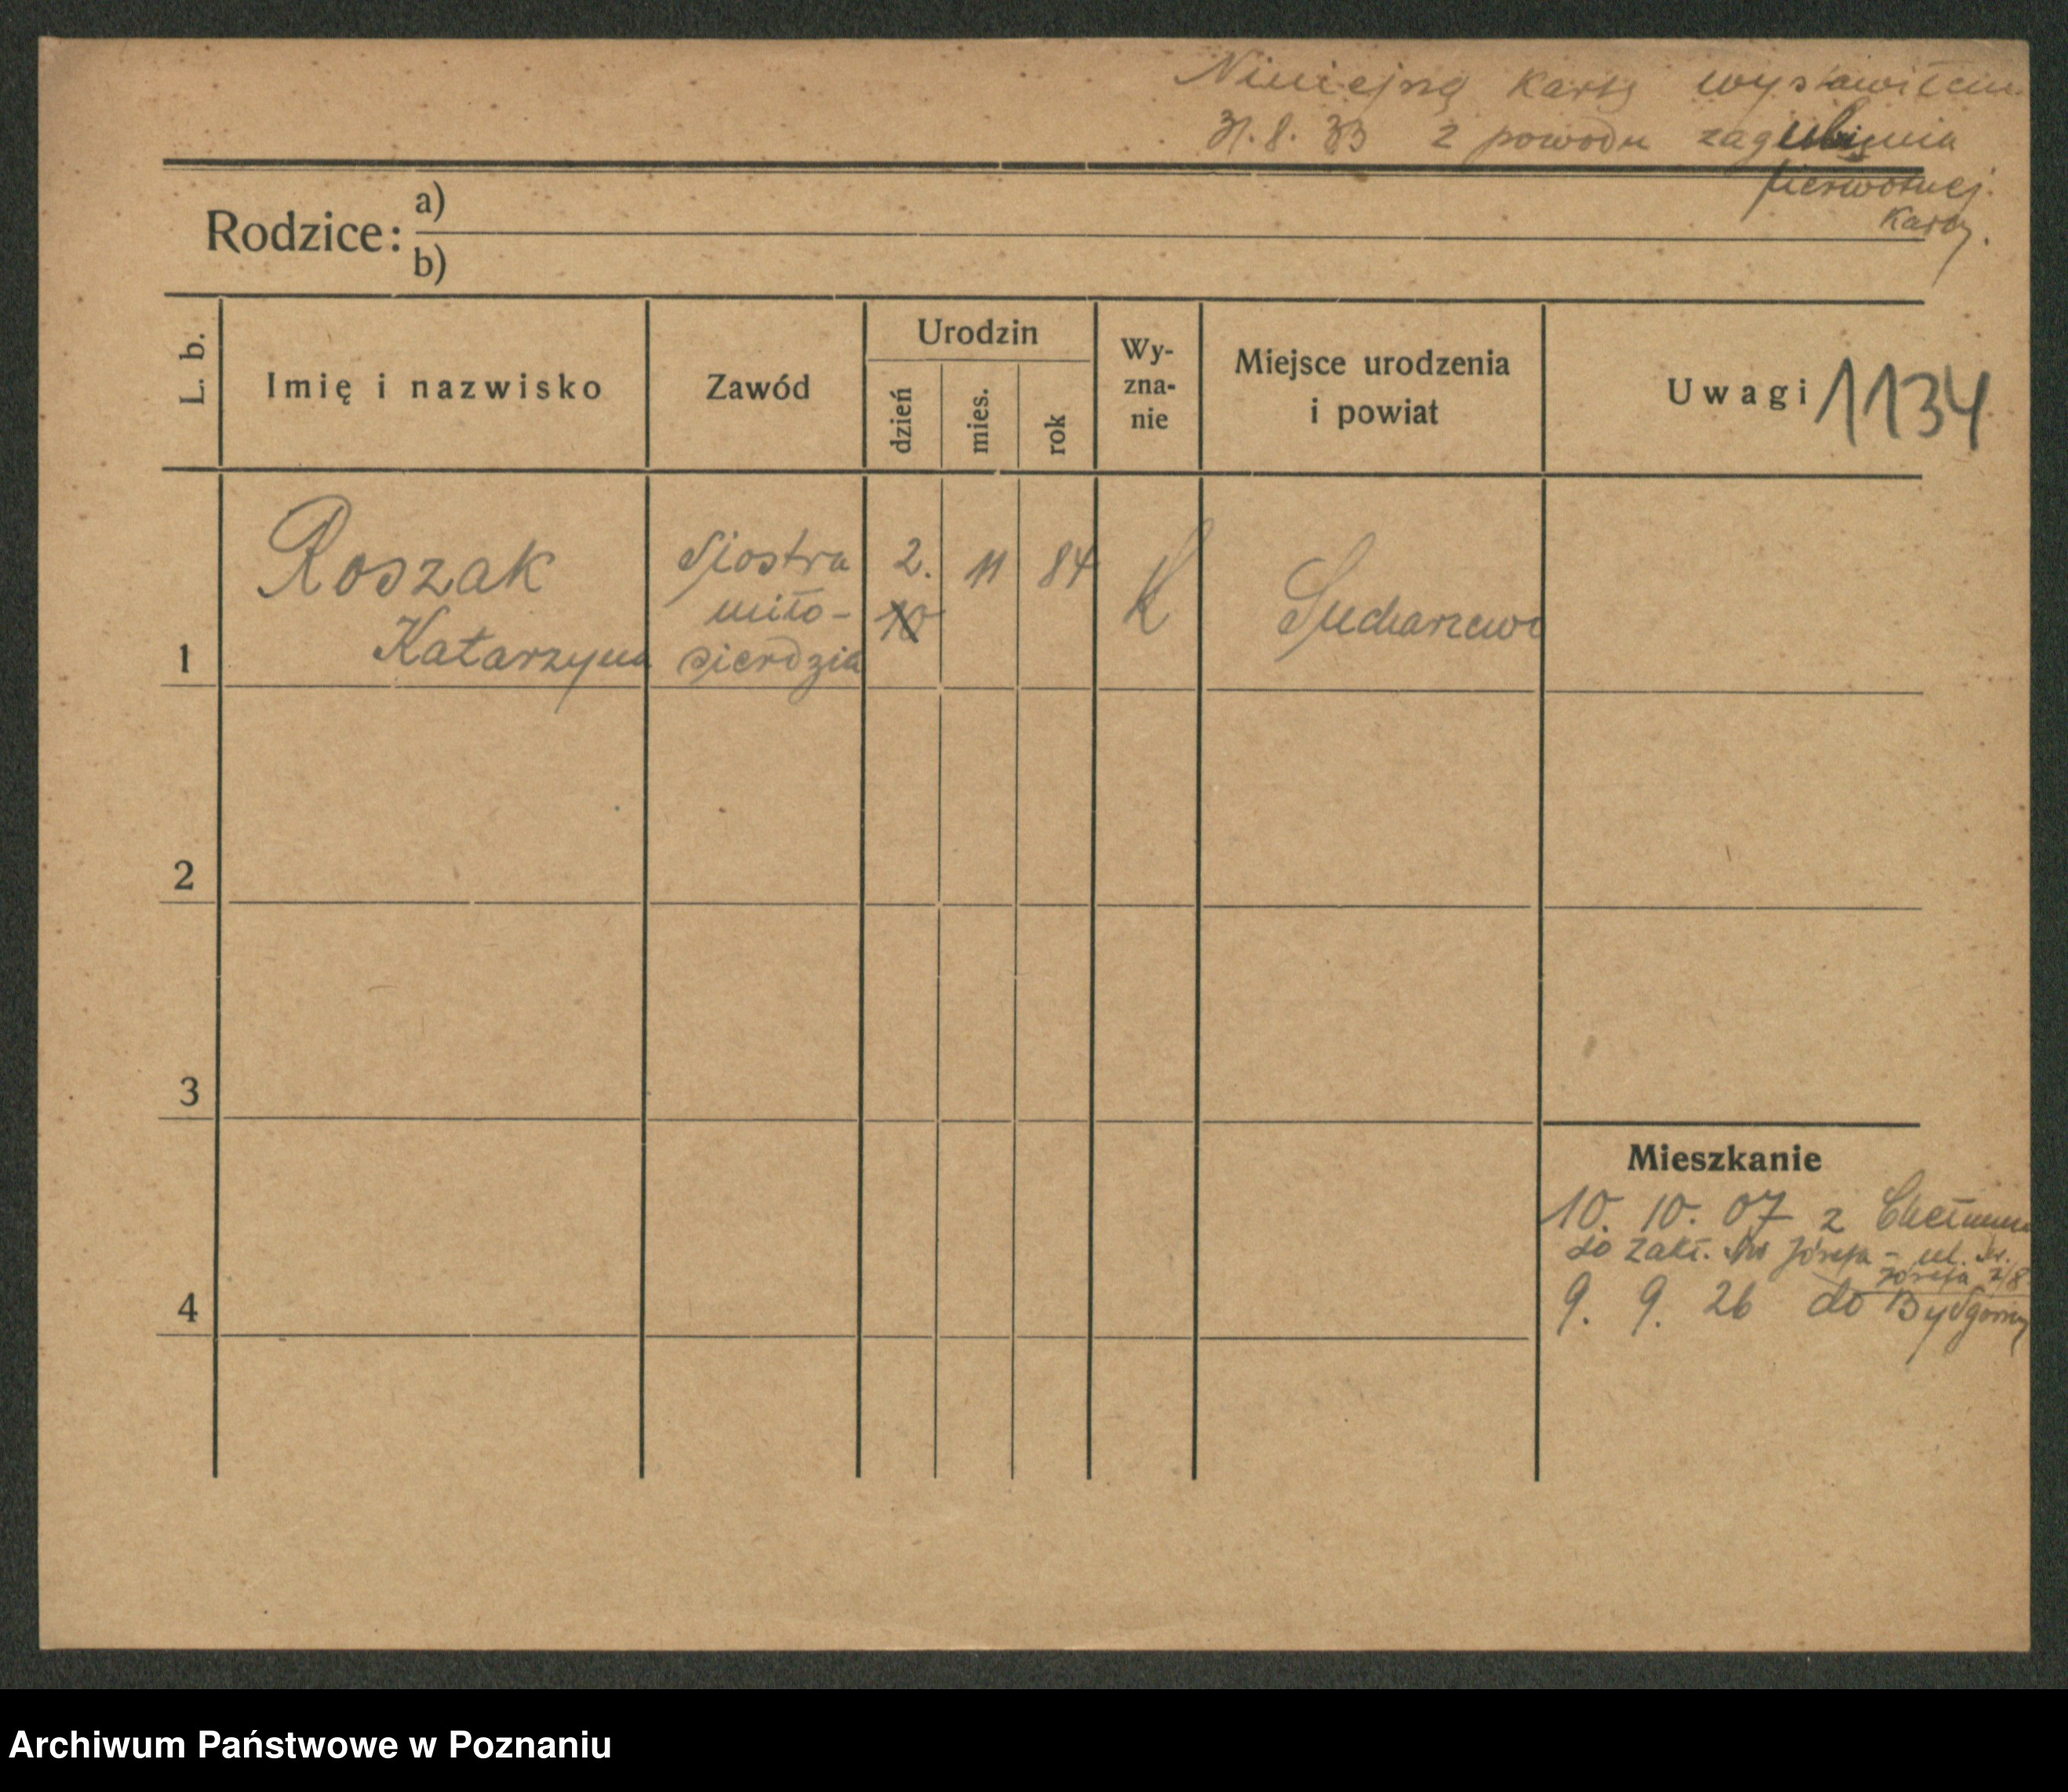 Niniejszą kartę wystawiłem
31.8.33 z powodu zagubienia
pierwotnej
karty.
Rodzice: a)
b)
L. b.
Imię i nazwisko
Zawód
Urodzin
dzień
mies.
rok
Wy-
zna-
nie
Miejsce urodzenia
i powiat
Uwagi 1134
1
Roszak
Katarzyna
Siostra
miło-
sierdzia
2. 11 84
10
K
Sucharzewo
2
3
4
Mieszkanie
10. 10. 07 z Chełmna
do Zakł. Św Józefa - ul. Św.
Józefa 2/8
9. 9. 26 do Bydgoszczy
Archiwum Państwowe w Poznaniu